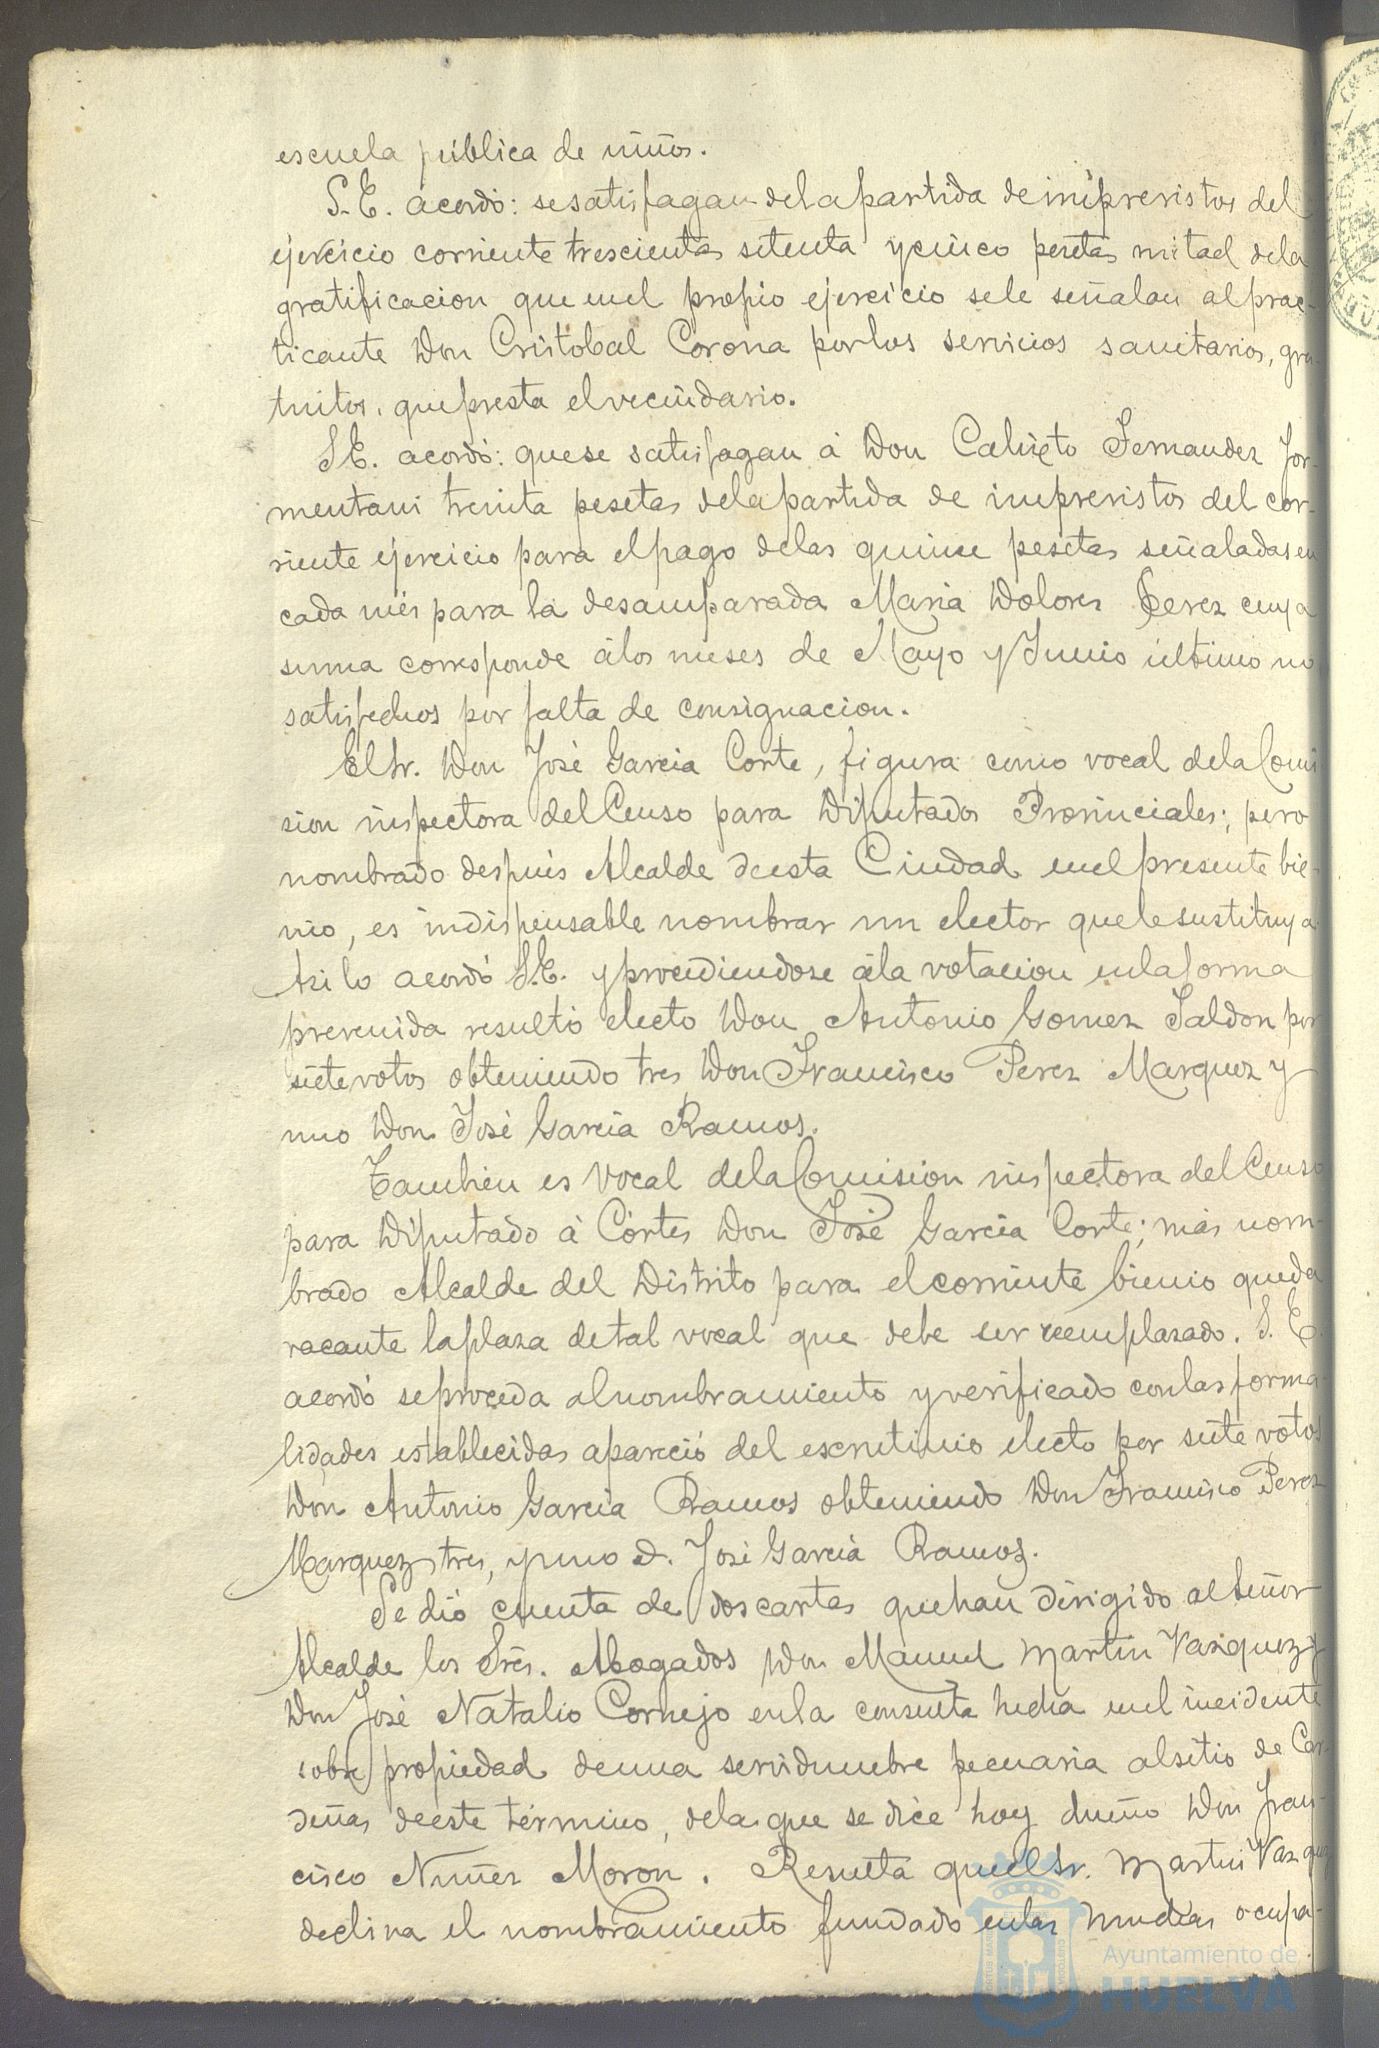 escuela pública de niños.
S. E. acordó: se satisfagan de la partida de imprevistos del
ejercicio corriente trescientas setenta y cinco pesetas mitad de la
gratificacion que en el propio ejercicio se le señalan al prac-
ticante Don Cristobal Corona por los servicios sanitarios, gra-
tuitos, que presta el vecindario.
S. E. acordó: que se satisfagan á Don Calixto Fernandez For-
mentani treinta pesetas de la partida de imprevistos del cor-
riente ejercicio para el pago de las quince pesetas señaladas en
cada mes para la desamparada Maria Dolores Perez cuya
suma corresponde á los meses de Mayo y Junio último no
satisfechos por falta de consignacion.
El Sr. Don José Garcia Corte, figura como vocal de la Comi
sion inspectora del Censo para Diputados Provinciales; pero
nombrado despues Alcalde de esta Ciudad en el presente bie-
nio, es indispensable nombrar un elector que le sustituya.
Asi lo acordó S. E. y procediendose á la votacion en la forma
prevenida resultó electo Don Antonio Gomez Saldon por
siete votos obteniendo tres Don Francisco Perez Marquez y
uno Don José Garcia Ramos.
Tambien es Vocal de la Comision inspectora del Censo
para Diputado á Córtes Don José Garcia Corte; más nom-
brado Alcalde del Distrito para el corriente bienio queda
vacante la plaza de tal vocal que debe ser reemplazado. S. E.
acordó se proceda al nombramiento y verificado con las forma-
lidades establecidas apareció del escrutinio electo por siete votos
Don Antonio Garcia Ramos obteniendo Don Francisco Perez
Marquez tres, y uno D. José Garcia Ramos.
Se dió cuenta de dos cartas que han dirigido al Señor
Alcalde los Sres. Abogados Don Manuel Martin Vazquez y
Don José Natalio Cornejo en la consulta hecha en el incidente
sobre propiedad de una servidumbre pecuaria al sitio de Car-
deñas de este término, de la que se dice hoy dueño Don Fran-
cisco Nuñez Moron. Resulta que el Sr. Martin Vazquez
declina el nombramiento fundado en las muchas ocupa-
Ayuntamiento de
HUELVA